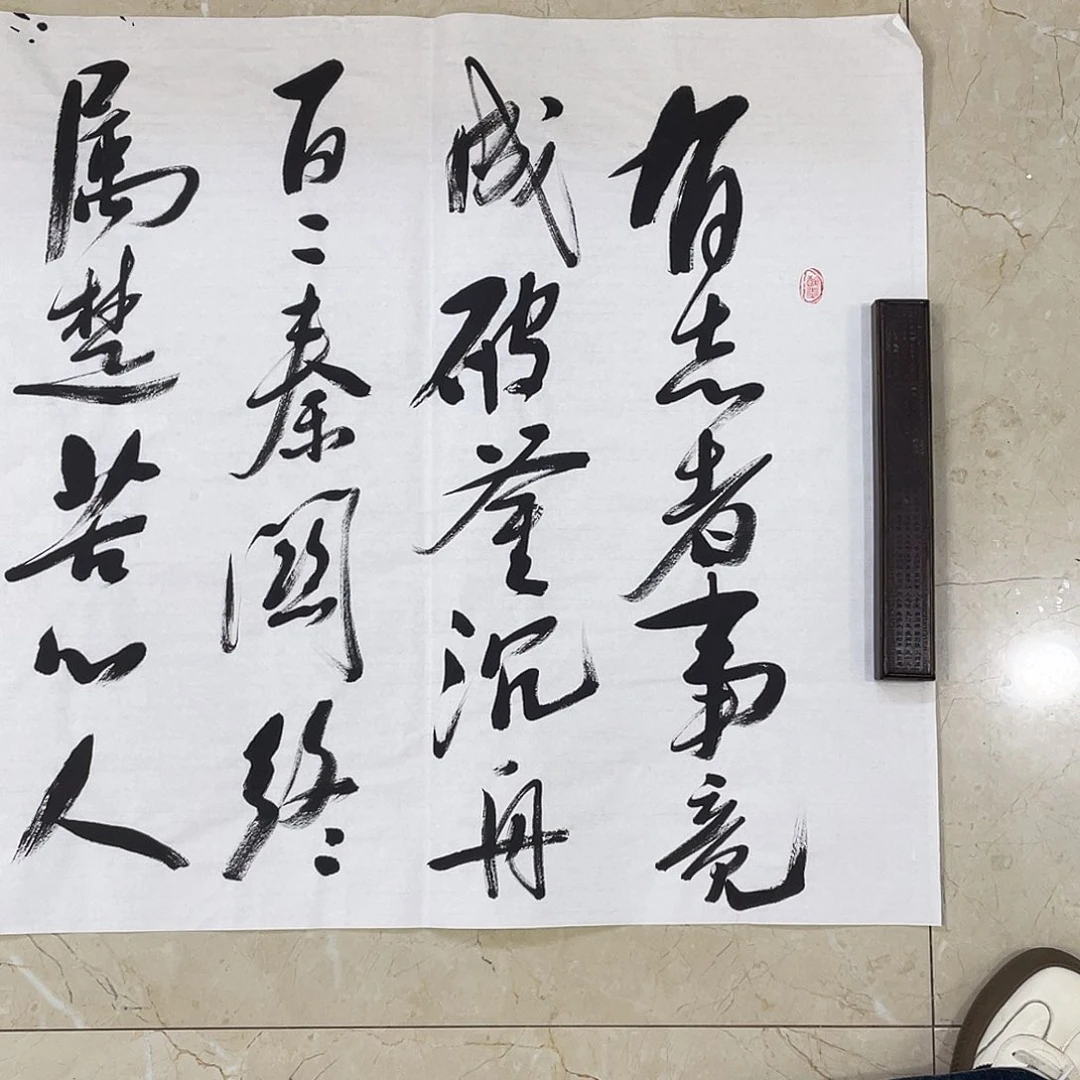 有志者事竟
成破釜沉舟
百二秦關終
属楚苦心人